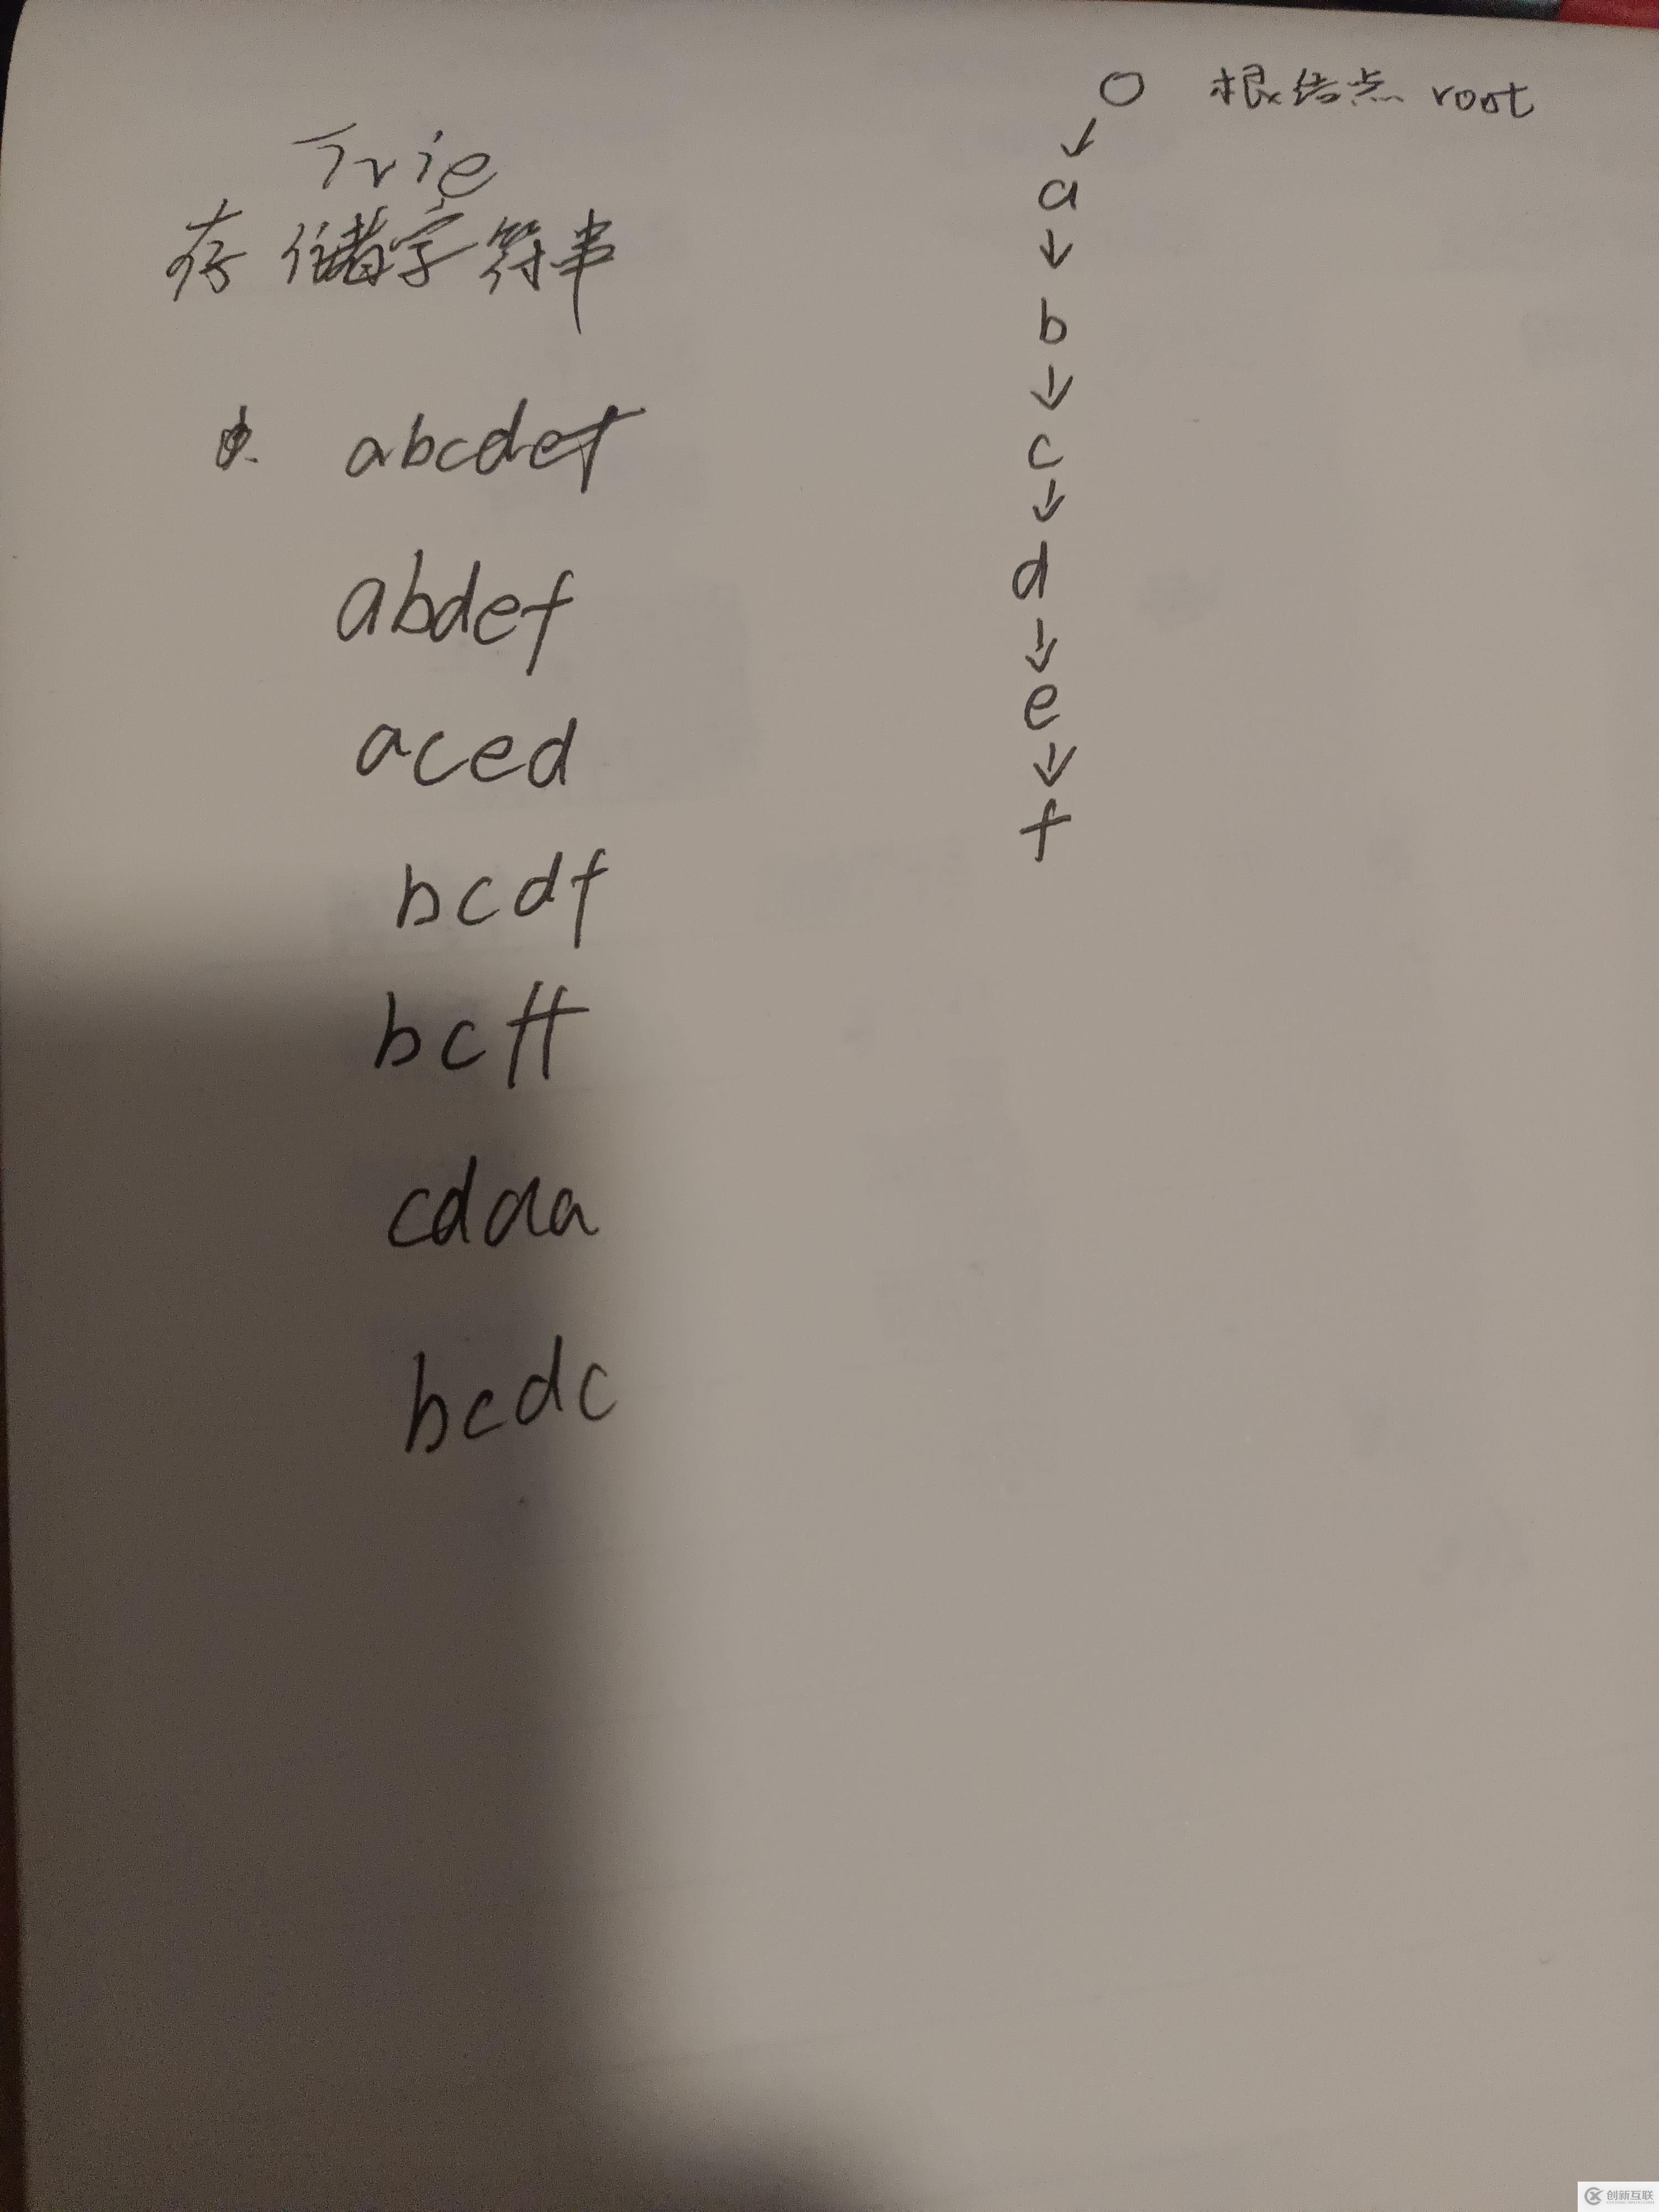 Trie
存储字符串
abcdef
abdef
aced
bcdf
bcff
cdaa
bcdc
根结点 root
a
b
c
d
e
f
创新互联